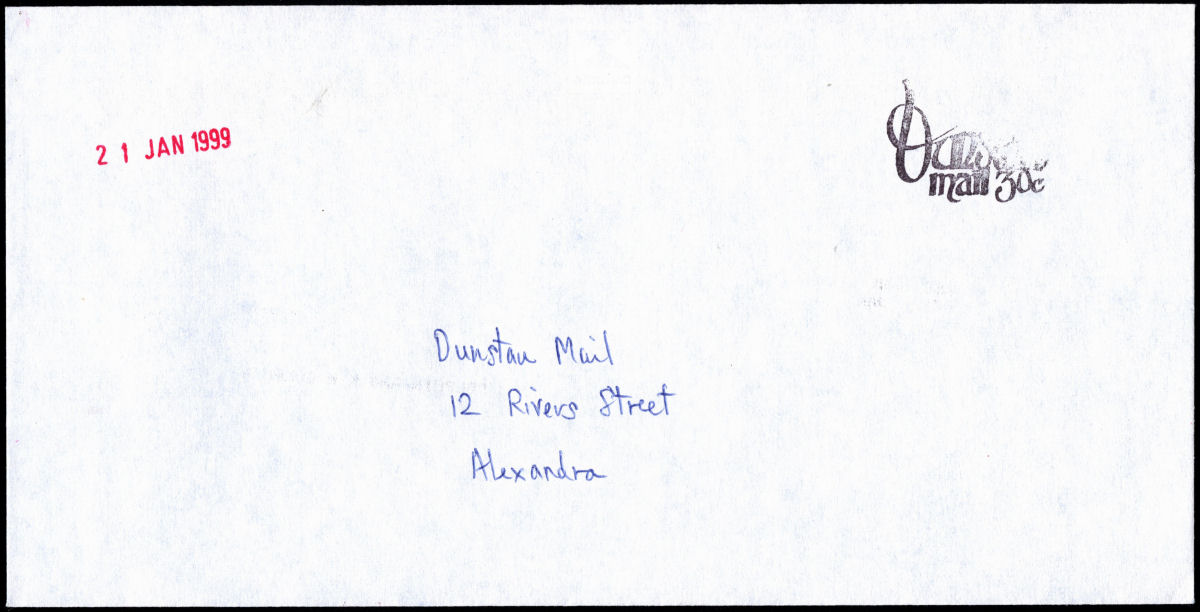 21 JAN 1999
mail 30c
Dunstan Mail
12 Rivers Street
Alexandra